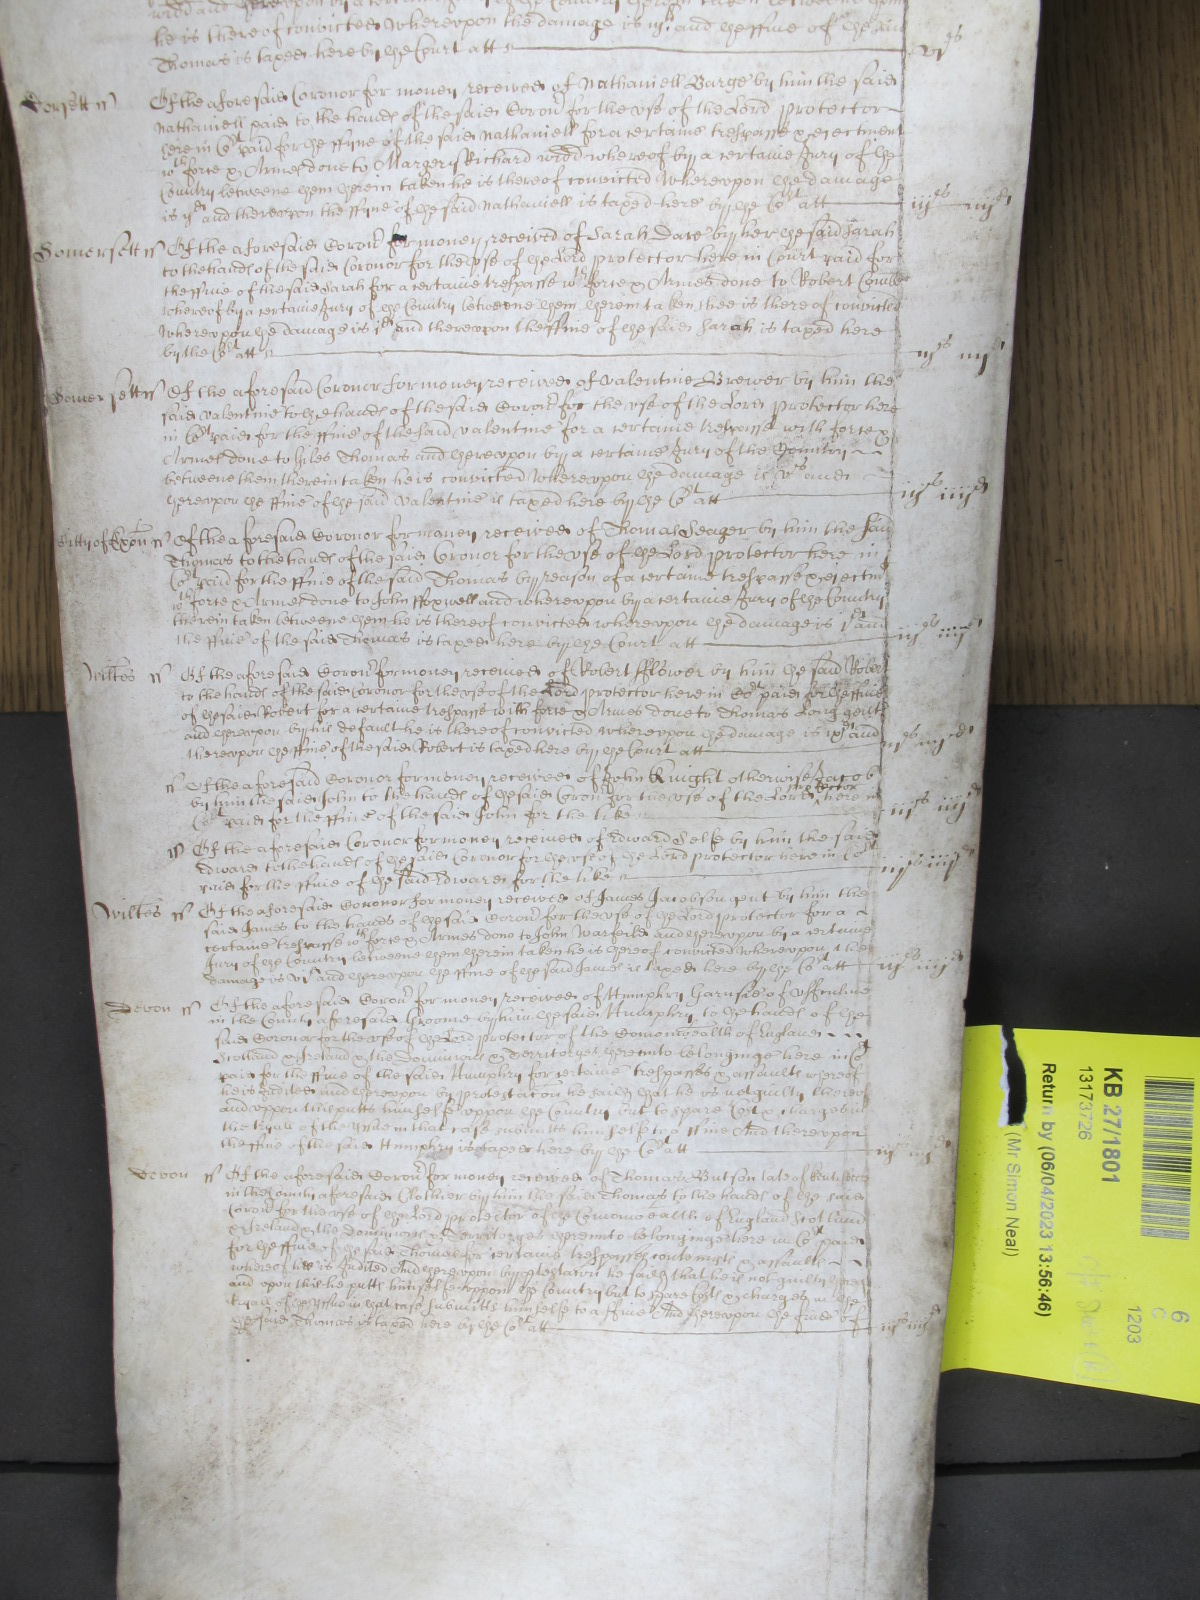 he is thereof convicted whereupon the damage is and the ffine of the said
Thomas is taxed here by the Court att
Dorsett ss Of the aforesaid Coronor for money received of Nathaniell Barge by him the said
Nathaniell paid to the hands of the said Coron̄ for the vse of the Lord protector
here in Cot paid for the ffyne of the said Nathaniell for a certaine trespasse & eiectment
wth force & Armes done to Margery Richard widd whereof by a certaine Jury of the
Country betweene them therein taken he is thereof convicted Whereupon the damage
is and thereupon the ffyne of the said Nathaniell is taxed here by the Cot att iijs iiijd
Somersett ss Of the aforesaid Coron̄ for money received of Sarah Dare by her the said Sarah
to the hands of the said Coronor for the vse of the Lord protector here in Court paid for
the ffine of the said Sarah for a certaine trespasse wth force & Armes done to Robert Combe
whereof by a certaine Jury of the Country betweene them therein taken shee is thereof convicted
Whereupon the damage is and thereupon the ffine of the said Sarah is taxed here
by the Cot att iijs iiijd
Somersett ss Of the aforesaid Coronor for money received of Valentine Brewer by him the
said Valentine to the hands of the said Coron̄ for the vse of the Lord protector here
in Cot paid for the ffine of the said Valentine for a certaine trespasse with force &
Armes done to Giles Thomas and thereupon by a certaine Jury of the Countrey
betweene them therein taken he is convicted Whereupon the damage is vs and
thereupon the ffine of the said Valentine is taxed here by the Cot att iijs iiijd
Citty of Exon̄ ss Of the aforesaid Coronor for money received of Thomas Seager by him the said
Thomas to the hands of the said Coronor for the vse of the Lord protector here in
Cot paid for the ffine of the said Thomas by reason of a certaine trespasse & eiectmt
wth force & Armes done to John ffoxwell and whereupon by a certaine Jury of the Country
therein taken betweene them he is thereof convicted whereupon the damage is and
the ffine of the said Thomas is taxed here by the Court att iijs iiijd
Wiltes ss Of the aforesaid Coron̄ for money received of Robert fflower by him the said Robert
to the hands of the said Coronor for the vse of the Lord protector here in Cot paid for the ffine
of the said Robert for a certaine trespasse with force & Armes done to Thomas Long gent
and thereupon by his default he is thereof convicted whereupon the damage is and
thereupon the ffine of the said Robert is taxed here by the Court att iijs iiijd
ss Of the aforesaid Coronor for money received of John Knight otherwise Jacob
by him the said John to the hands of the said Coron̄ for the vse of the Lord protector here in
Cot paid for the ffine of the said John for the like iijs iiijd
ss Of the aforesaid Coronor for money received of Edward Selfe by him the said
Edward to the hands of the said Coronor for the vse of the Lord protector here in Cot
paid for the ffine of the said Edward for the like iijs iiijd
Wiltes ss Of the aforesaid Coronor for money received of James Jacobson gent by him the
said James to the hands of the said Coron̄ for the vse of the Lord protector for a
certaine trespasse wth force & Armes done to John Warfeild and thereupon by a certaine
Jury of the Country betweene them therein taken he is thereof convicted whereupon the
damage is and thereupon the ffine of the said James is taxed here by the Cot att iijs iiijd
Devon ss Of the aforesaid Coron̄ for money received of Humphry Garnsie of Vffculme
in the County aforesaid Groome by him the said Humphry to the hands of the
said Coronor for the vse of the Lord protector of the Comonwealth of England
Scotland & Ireland & the dominions & Territoryes thereunto belonginge here in Cot
paid for the ffine of the said Humphry for certaine trespasses & assaults whereof
he is indited and thereupon by protestacon he saith that he is not guilty thereof
and vppon this putts himselfe vppon the Country but to spare Costs & charges in
the tryall of the yssue in that case submitts himselfe to a ffine And thereupon
the ffine of the said Humphry is taxed here by the Cot att iijs iiijd
Devon ss Of the aforesaid Coron̄ for money received of Thomas Butson late of
in the County aforesaid Clothier by him the said Thomas to the hands of the said
Coron̄ for the vse of the Lord protector of the Comonwealth of England Scotland
& Ireland & the dominions & Territoryes thereunto belonginge here in Cot paid
for the ffine of the said Thomas for certaine trespasses contempts & assaults
whereof hee is indited And thereupon by protestacon he saith that he is not guilty
and vpon this he putts himselfe vppon the Country but to spare Costs & charges in the
tryall of the yssue in that case submitts himselfe to a ffine And thereupon the fine of
the said Thomas is taxed here by the Cot att iijs iiijd
KB 27/1801
13173726
Return by (06/04/2023 13:56:46)
(Mr Simon Neal)
6
C
1203